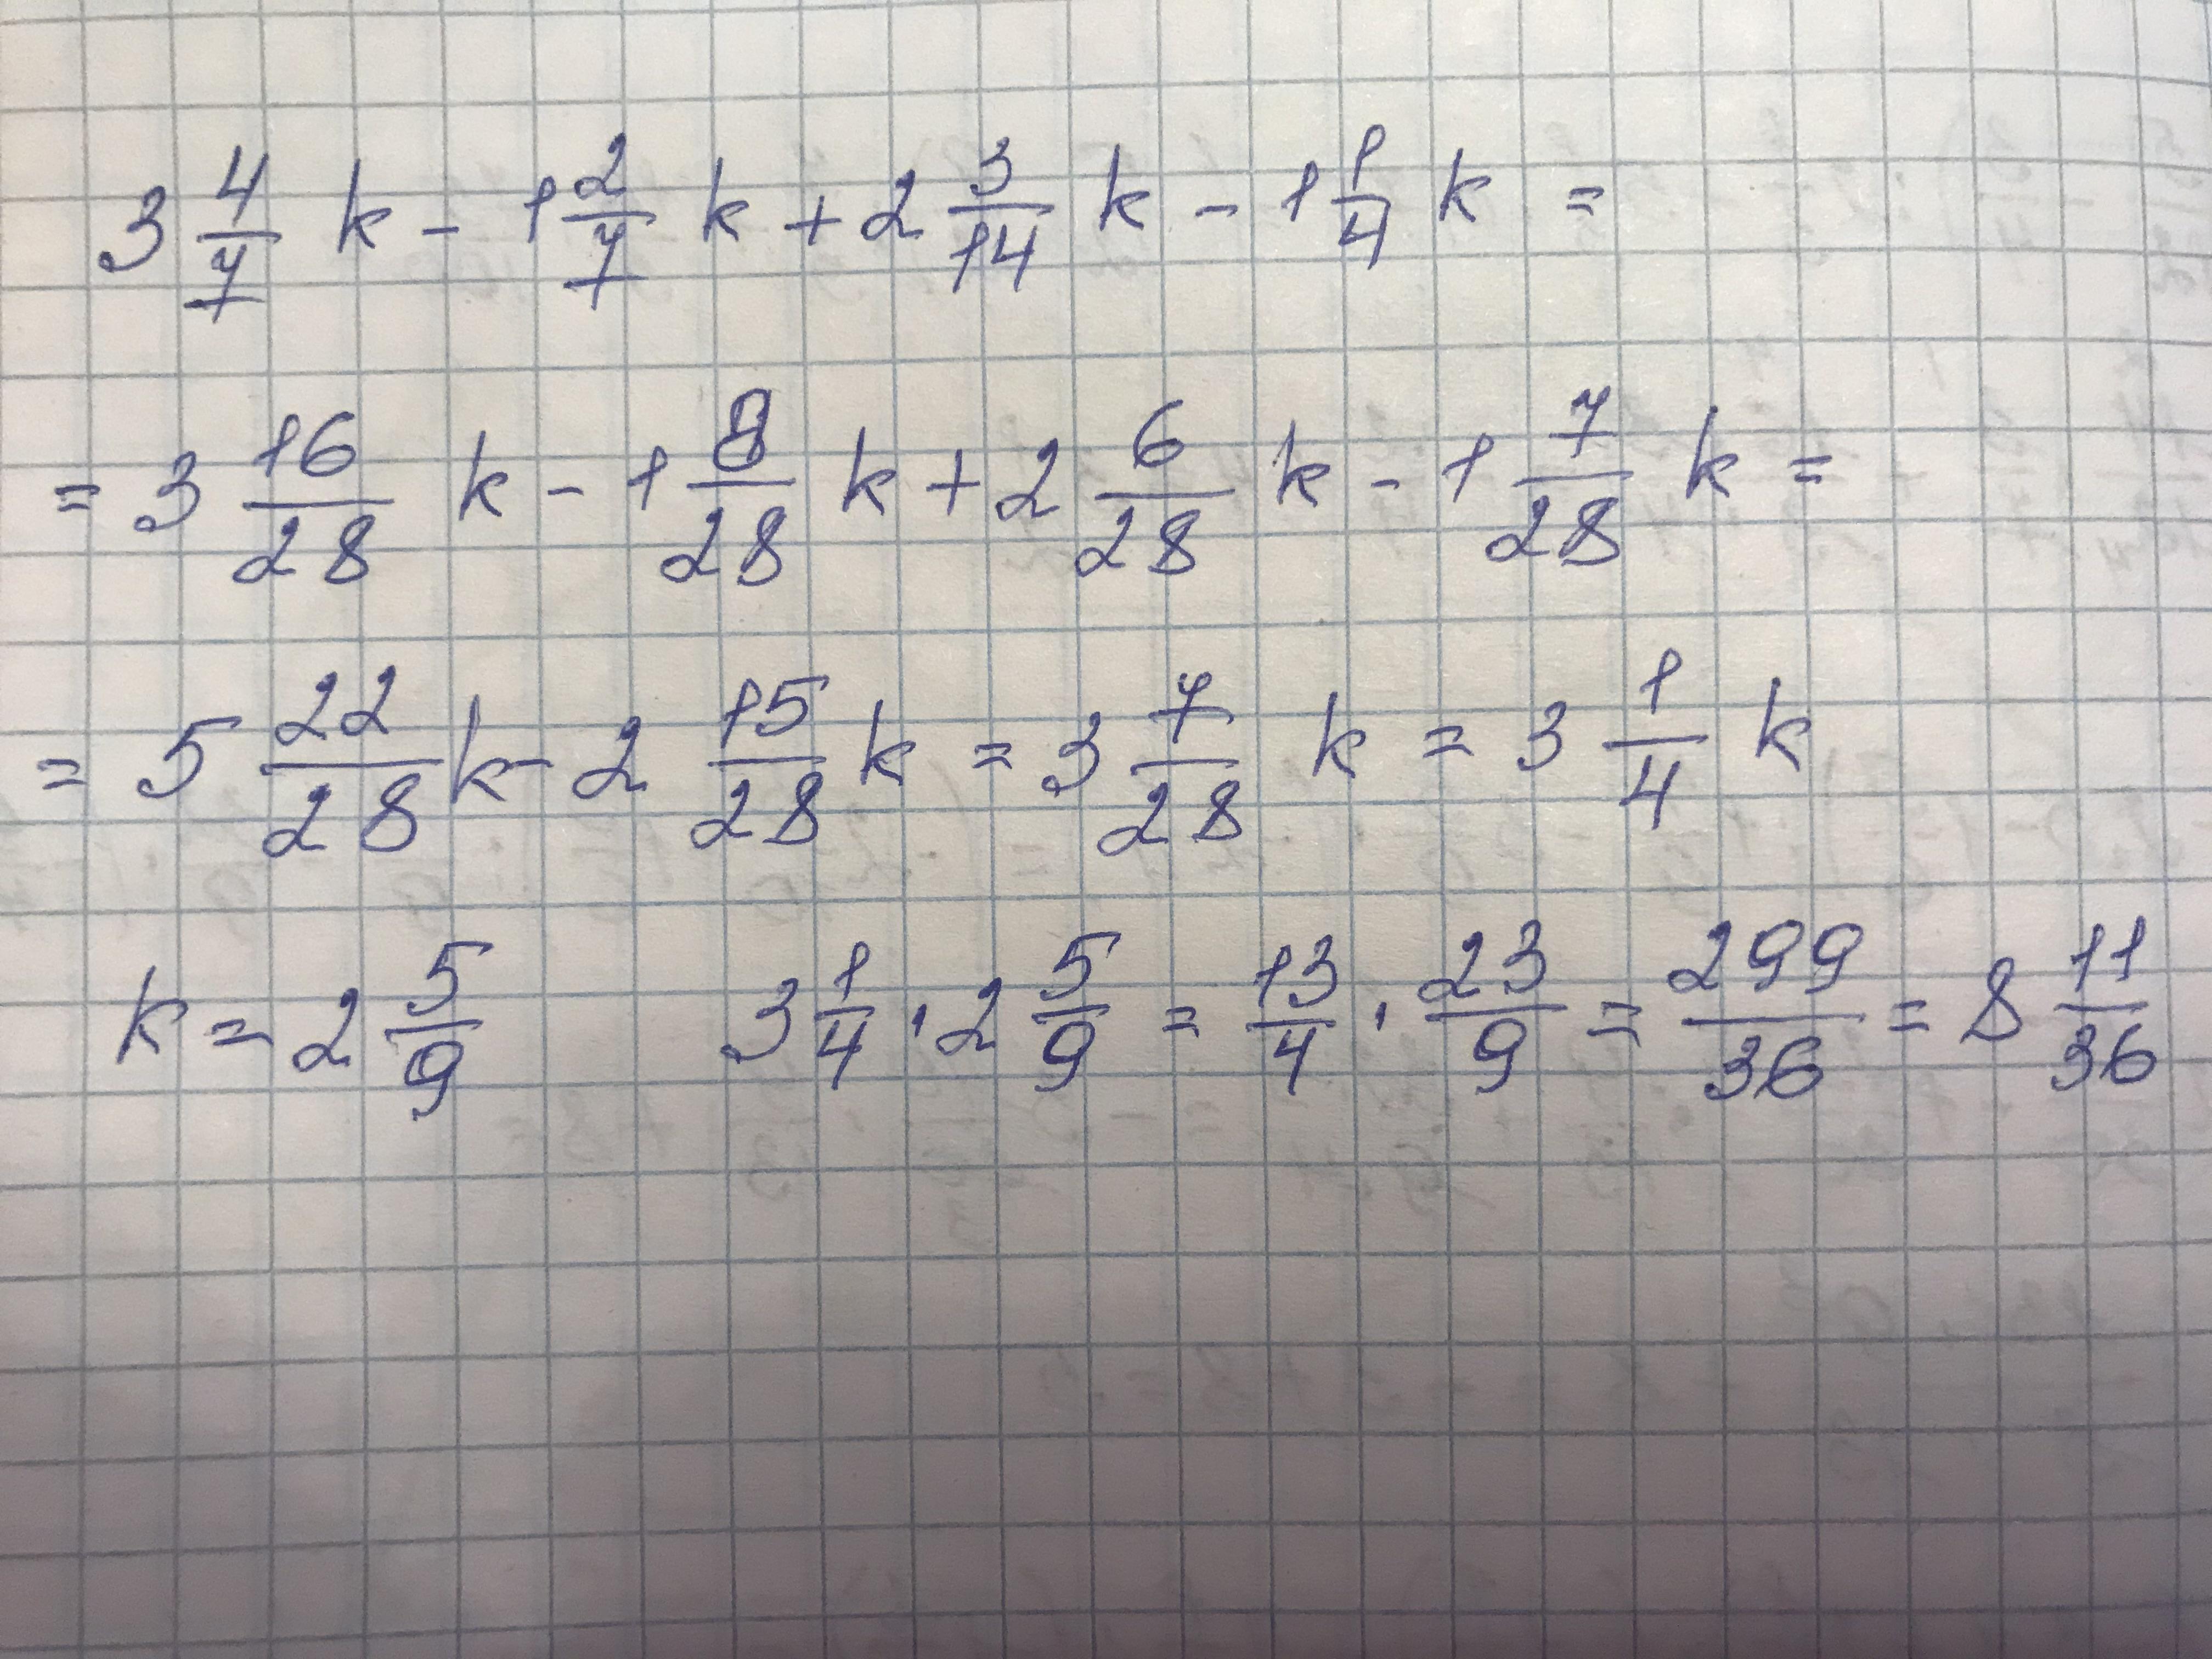 3 4/7 k - 1 2/7 k + 2 3/14 k - 1 1/4 k =
= 3 16/28 k - 1 8/28 k + 2 6/28 k - 1 7/28 k =
= 5 22/28 k - 2 15/28 k = 3 7/28 k = 3 1/4 k
k = 2 5/9 3 1/4 · 2 5/9 = 13/4 · 23/9 = 299/36 = 8 11/36